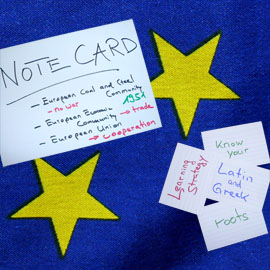 NOTE CARD
- European Coal and Steel
Community
→ no war
1951
- European Economic
Community → trade
- European Union
→ cooperation
Learning
Strategy
Know
your
Latin
and
Greek
roots